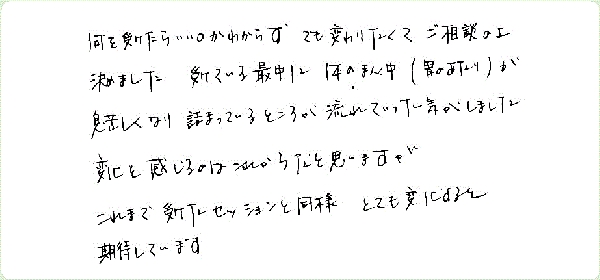 何を受けたらいいのかわからず でも変わりたくて ご相談の上
決めました 受けている最中に 体のまん中(胃のあたり)が
息苦しくなり 詰まっているところが 流れていった気がしました
変化を感じるのはこれからだと思いますが
これまで受けたセッションと同様 とても変化すると
期待しています